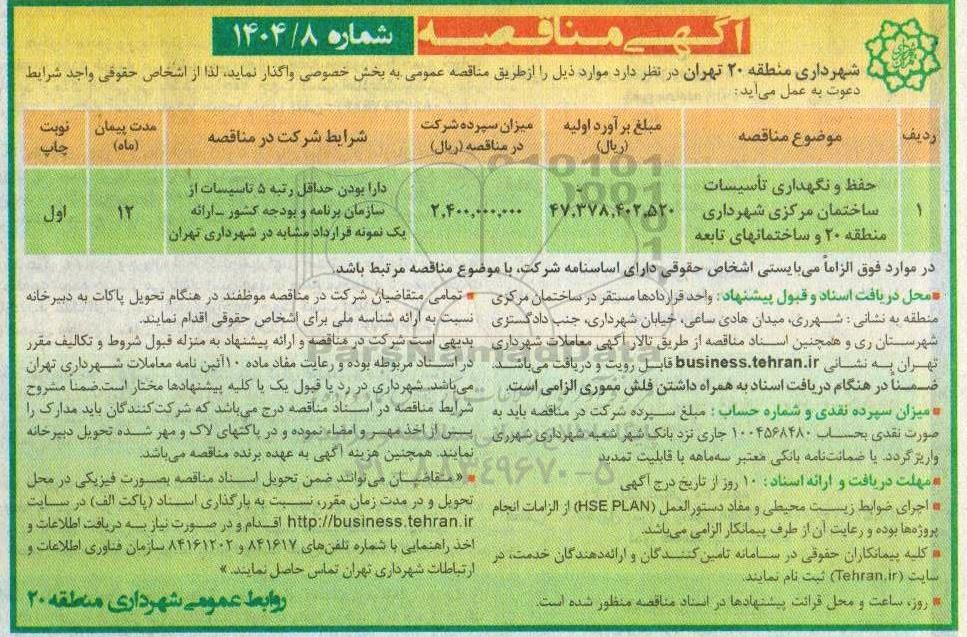 آگهی مناقصه
شماره ۱۴۰۴/۸
شهرداری منطقه ۲۰ تهران در نظر دارد موارد ذیل را ازطریق مناقصه عمومی به بخش خصوصی واگذار نماید، لذا از اشخاص حقوقی واجد شرایط
دعوت به عمل می‌آید:
ردیف
موضوع مناقصه
مبلغ برآورد اولیه
(ریال)
میزان سپرده شرکت
در مناقصه (ریال)
شرایط شرکت در مناقصه
مدت پیمان
(ماه)
نوبت
چاپ
۱
حفظ و نگهداری تأسیسات
ساختمان مرکزی شهرداری
منطقه ۲۰ و ساختمانهای تابعه
۴۷,۳۷۸,۴۰۲,۵۲۰
۲,۴۰۰,۰۰۰,۰۰۰
دارا بودن حداقل رتبه ۵ تاسیسات از
سازمان برنامه و بودجه کشور ـ ارائه
یک نمونه قرارداد مشابه در شهرداری تهران
۱۲
اول
در موارد فوق الزاماً می‌بایستی اشخاص حقوقی دارای اساسنامه شرکت، با موضوع مناقصه مرتبط باشد.
▪ محل دریافت اسناد و قبول پیشنهاد: واحد قراردادها مستقر در ساختمان مرکزی
منطقه به نشانی: شهرری، میدان هادی ساعی، خیابان شهرداری، جنب دادگستری
شهرستان ری و همچنین اسناد مناقصه از طریق تالار آگهی معاملات شهرداری
تهران به نشانی business.tehran.ir قابل رویت و دریافت می‌باشد.
ضمناً در هنگام دریافت اسناد به همراه داشتن فلش مموری الزامی است.
▪ میزان سپرده نقدی و شماره حساب: مبلغ سپرده شرکت در مناقصه باید به
صورت نقدی بحساب ۱۰۰۴۵۶۸۴۸۰ جاری نزد بانک شهر شعبه شهرداری شهرری
واریز گردد. یا ضمانت‌نامه بانکی معتبر سه‌ماهه با قابلیت تمدید
▪ مهلت دریافت و ارائه اسناد: ۱۰ روز از تاریخ درج آگهی
▪ اجرای ضوابط زیست محیطی و مفاد دستورالعمل (HSE PLAN) از الزامات انجام
پروژه‌ها بوده و رعایت آن از طرف پیمانکار الزامی می‌باشد.
▪ کلیه پیمانکاران حقوقی در سامانه تامین‌کنندگان و ارائه‌دهندگان خدمت، در
سایت (Tehran.ir) ثبت نام نمایند.
▪ روز، ساعت و محل قرائت پیشنهادها در اسناد مناقصه منظور شده است.
▪ تمامی متقاضیان شرکت در مناقصه موظفند در هنگام تحویل پاکات به دبیرخانه
نسبت به ارائه شناسه ملی برای اشخاص حقوقی اقدام نمایند.
بدیهی است شرکت در مناقصه و ارائه پیشنهاد به منزله قبول شروط و تکالیف مقرر
در اسناد مربوطه بوده و رعایت مفاد ماده ۱۰ آئین نامه معاملات شهرداری تهران
می‌باشد. شهرداری در رد یا قبول یک یا کلیه پیشنهادها مختار است. ضمنا مشروح
شرایط مناقصه در اسناد مناقصه درج می‌باشد که شرکت‌کنندگان باید مدارک را
پس از اخذ مهر و امضاء نموده و در پاکتهای لاک و مهر شده تحویل دبیرخانه
نمایند. همچنین هزینه آگهی به عهده برنده مناقصه می‌باشد.
▪ «متقاضیان می‌توانند ضمن تحویل اسناد مناقصه بصورت فیزیکی در محل
تحویل و در مدت زمان مقرر، نسبت به بارگذاری اسناد (پاکت الف) در سایت
http://business.tehran.ir اقدام و در صورت نیاز به دریافت اطلاعات و
اخذ راهنمایی با شماره تلفن‌های ۸۴۱۶۱۷ و ۸۴۱۶۱۲۰۲ سازمان فناوری اطلاعات و
ارتباطات شهرداری تهران تماس حاصل نمایند.»
روابط عمومی شهرداری منطقه ۲۰
ParsNamadData
۰۲۱-۸۸۳۴۹۶۷۰-۵